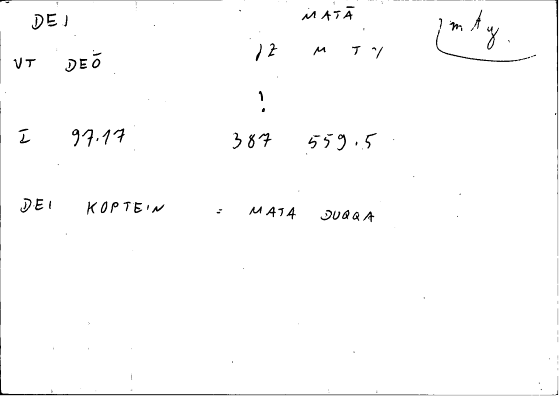 DEI MATĀ mAy
VT DEŌ IZ M T Y
!
I 97.17 387 559.5
DEI KOPTEIN = MATA DUQQA